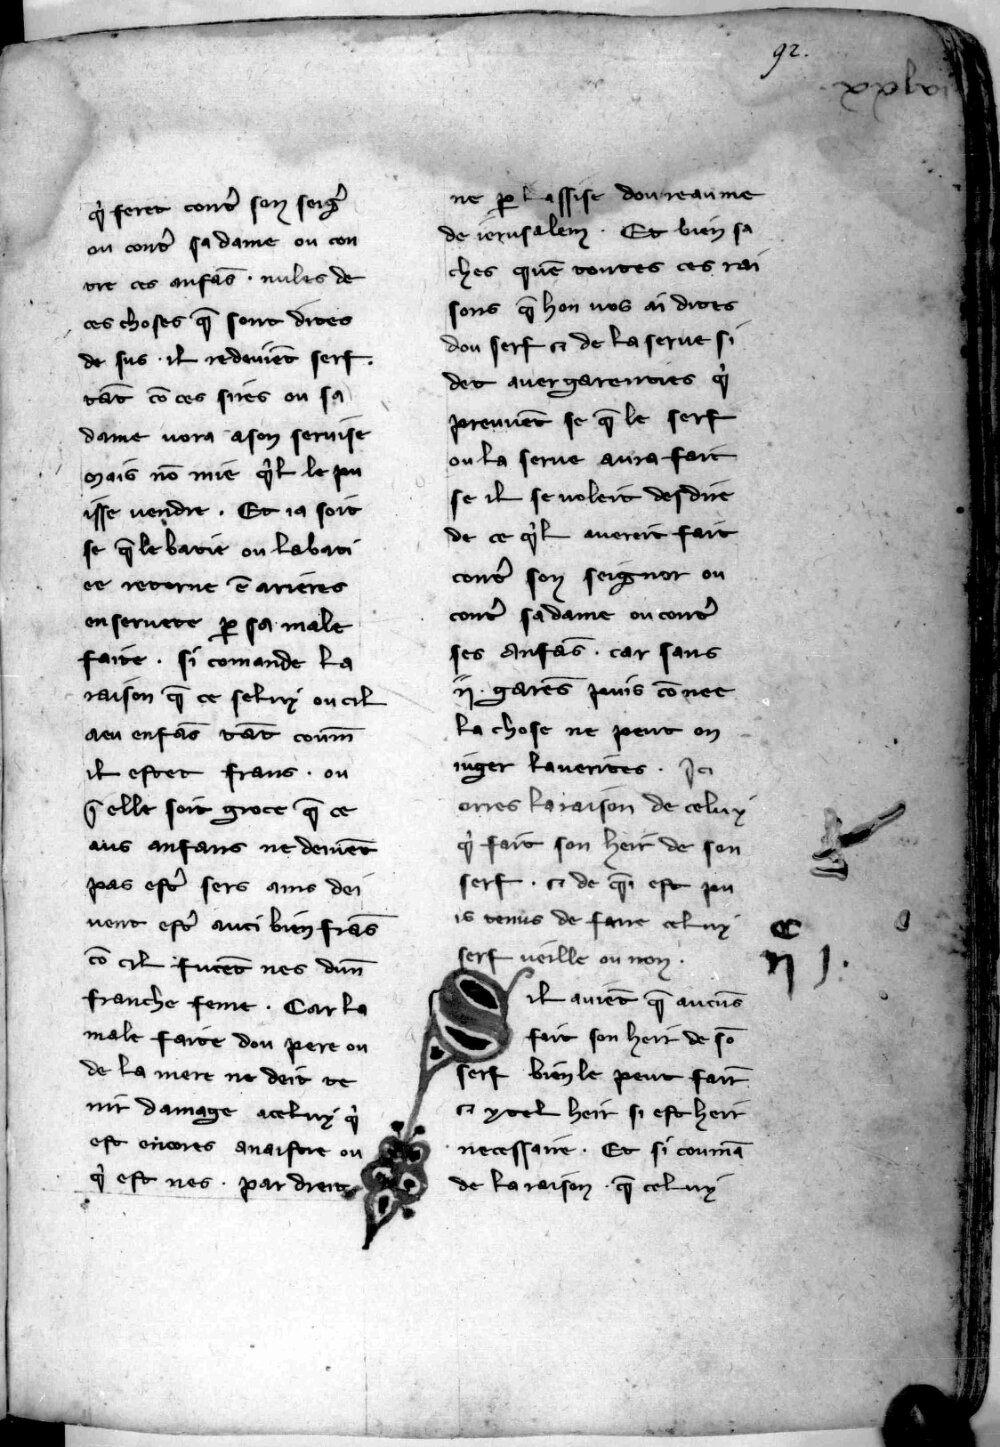 92.
xxxlvi
q̓ feret contᷣ son seigᷣ
ou contᷣ sa dame ou con
tre ces anfās · nules de
ces choses q̄ sont dites
de sus · il redeviēt serf ·
tāt cō ces sires ou sa
dame vora a son servise
mais nō mie q̓l le pu
isse vendre · Et ia soit
se q̄ le batie ou la bati
ee retorne ē arieres
en servete ꝑ sa male
faite · si comande la
raison q̄ ce seluy ou cil
a eu enfās tāt coum̄
il estet frans · ou
q̄ elle soit groce q̄ ce
aus anfans ne deviēt
pas estᷣ sers ains dei
vent estᷣ auci bien frās
cō cil fucēt nes dun̄
franche feme · Car la
male faite dou pere ou
de la mere ne deit te
nir damage a celuy q̓
est encores a naistre ou
q̓ est nes · par dreit
ne ꝑ l assise dou reaume
de ierusalem · Et bien sa
ches quē toutes ces rai
sons q̄ hon vos ai dites
dou serf ⁊ de la serve si
det aver garenties q̓
preuvēt se q̄ le serf
ou la serve aura fait
se il se voleit desdire
de ce q̓l avereit fait
contᷣ son seignor ou
contᷣ sa dame ou contᷣ
ses anfās · car sans
ij · garēs puis cō nee
la chose ne peut on
iuger la verites · Ici
orres la raison de celuy
q̓ fait son heir de son
serf · ⁊ de q̄i est pu
is tenus de faire celuy
serf veille ou non ·
C
n j ·
Sil aviēt q̄ aucūs
fait son heir de sō
serf bien le peut fair̄
⁊ ytel heir si est heir
necessaire · Et si coumā
de la raison · q̄ celuy